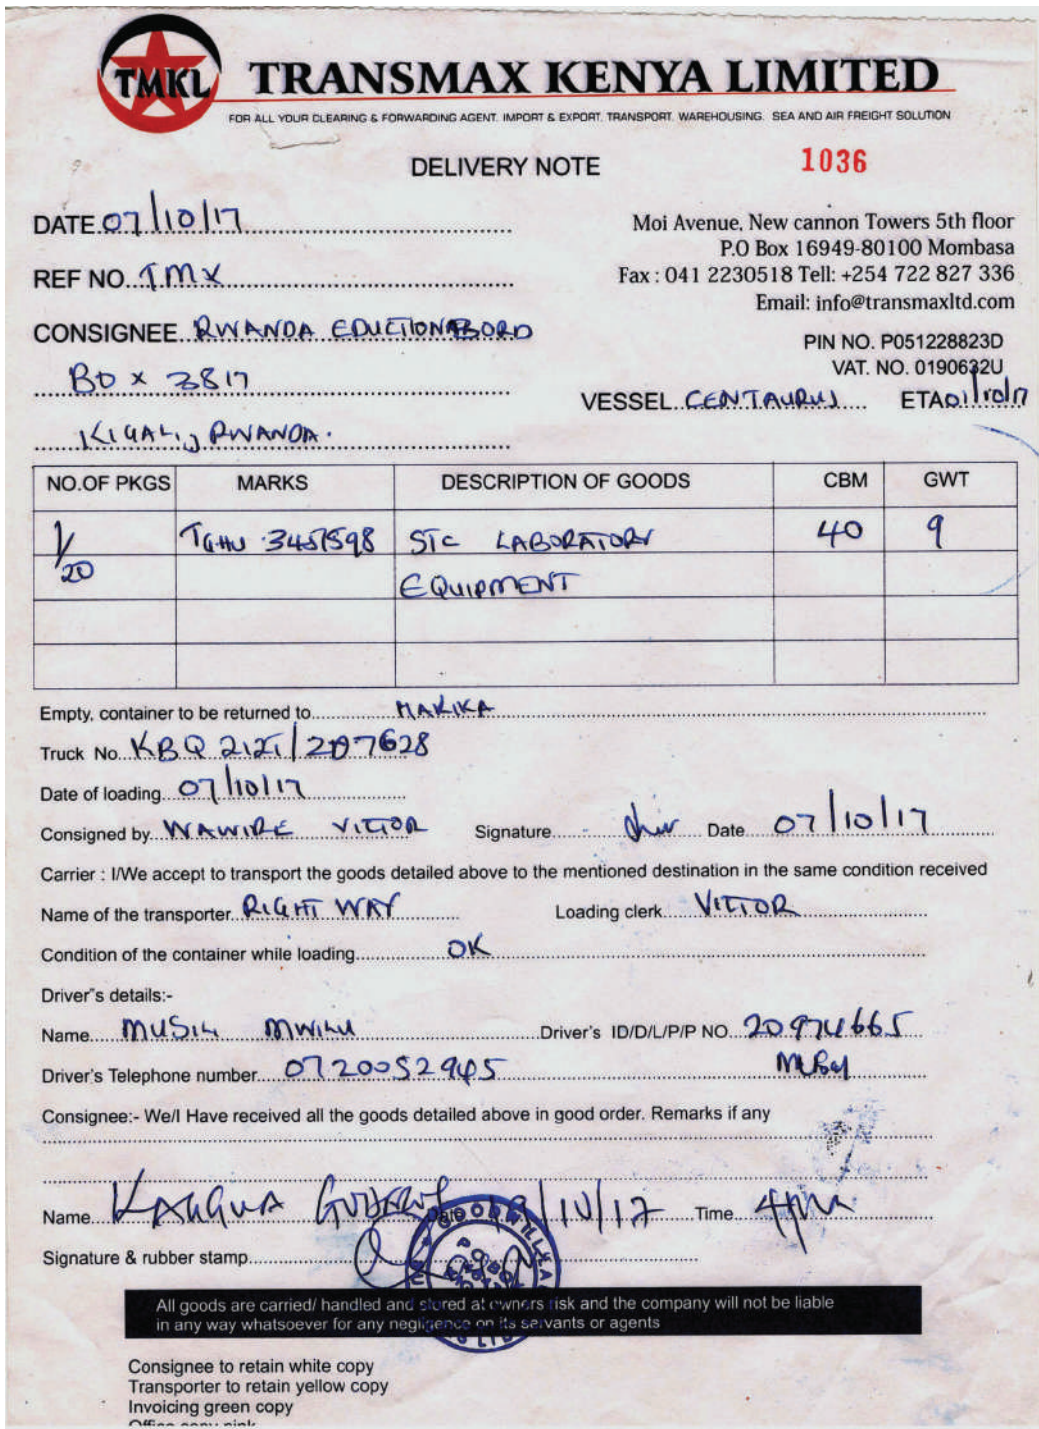 TMKL TRANSMAX KENYA LIMITED
FOR ALL YOUR CLEARING & FORWARDING AGENT. IMPORT & EXPORT. TRANSPORT. WAREHOUSING. SEA AND AIR FREIGHT SOLUTION
DELIVERY NOTE 1036
DATE 07/10/17
Moi Avenue, New cannon Towers 5th floor
P.O Box 16949-80100 Mombasa
REF NO. TMX
Fax : 041 2230518 Tell: +254 722 827 336
Email: info@transmaxltd.com
CONSIGNEE RWANDA EDUCTION BORD
PIN NO. P051228823D
VAT. NO. 0190632U
BOX 3817
VESSEL CENTAURUS ETA 01/10/17
KIGALI, RWANDA.
NO.OF PKGS MARKS DESCRIPTION OF GOODS CBM GWT
1/20 TGHU 3451598 STC LABORATORY 40 9
EQUIPMENT
Empty, container to be returned to MAKIKA
Truck No. KBQ 212T/ZD7628
Date of loading 07/10/17
Consigned by WAWIRE VICTOR Signature Date 07/10/17
Carrier : I/We accept to transport the goods detailed above to the mentioned destination in the same condition received
Name of the transporter RIGHT WAY Loading clerk VICTOR
Condition of the container while loading OK
Driver"s details:-
Name MUSILI MWILU Driver's ID/D/L/P/P NO. 20974665
Driver's Telephone number 0720052945
Consignee:- We/I Have received all the goods detailed above in good order. Remarks if any
Name Date /10/17 Time 4pm
Signature & rubber stamp
GOODWILL
All goods are carried/ handled and stored at owners risk and the company will not be liable
in any way whatsoever for any negligence on its servants or agents
Consignee to retain white copy
Transporter to retain yellow copy
Invoicing green copy
Office copy pink